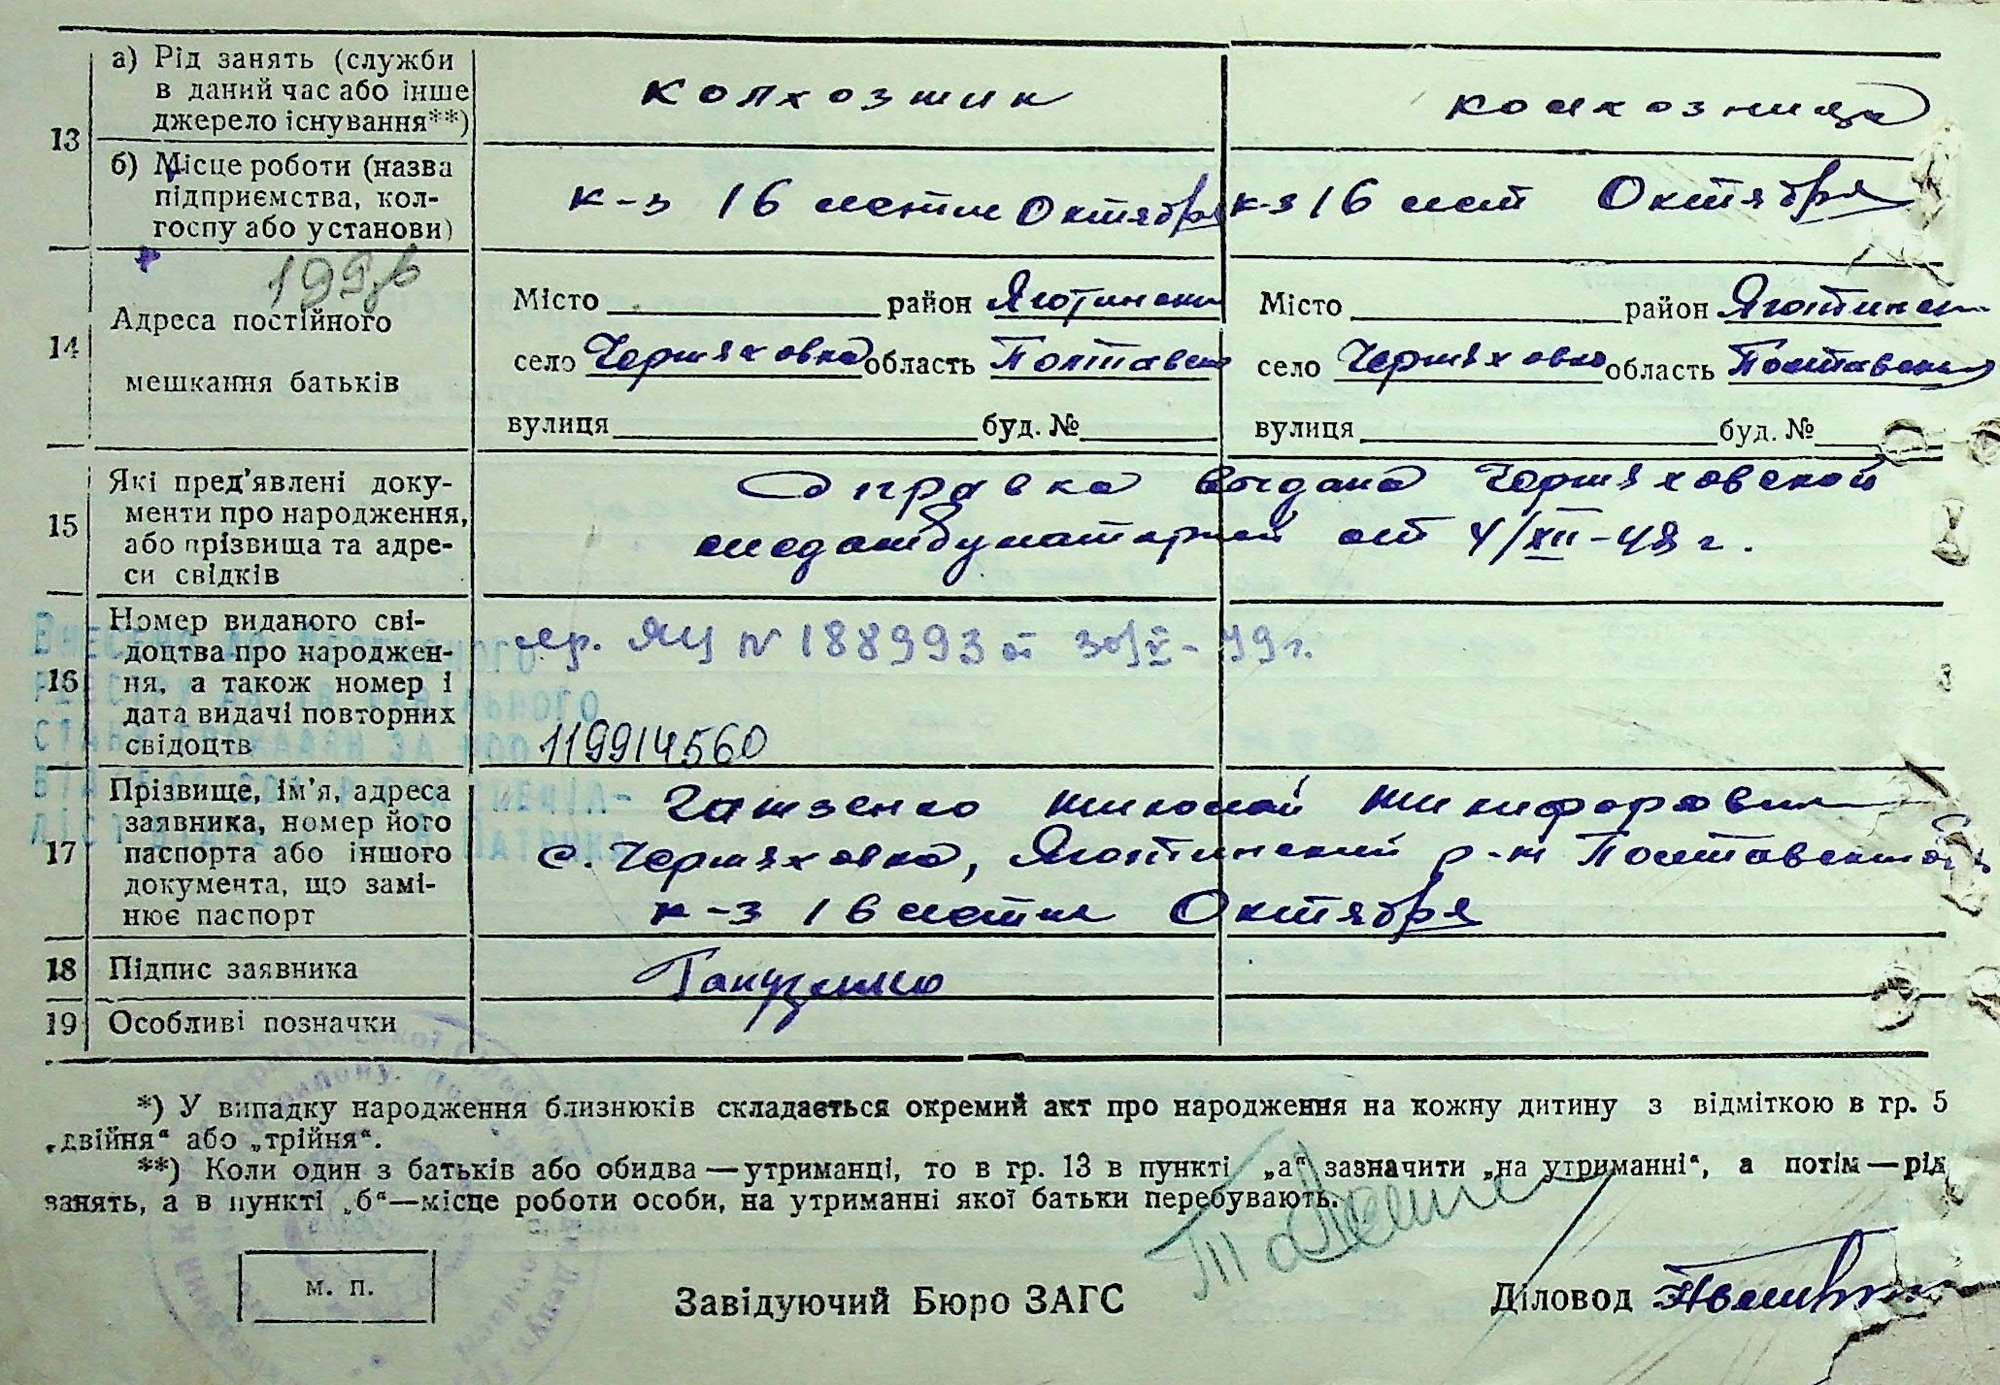 13
а) Рід занять (служби
в даний час або інше
джерело існування**)
колхозник
колхозница
б) Місце роботи (назва
підприємства, кол-
госпу або установи)
к-з 16 летие Октября
к-з 16 лет Октября
14
Адреса постійного
мешкання батьків
Місто район Яготинский
село Черняховка область Полтавская
вулиця буд. №
Місто район Яготинский
село Черняховка область Полтавская
вулиця буд. №
15
Які пред'явлені доку-
менти про народження,
або прізвища та адре-
си свідків
Справка выдана Черняховской
медамбулаторией от 4/XII-48 г.
16
Номер виданого сві-
доцтва про народжен-
ня, а також номер і
дата видачі повторних
свідоцтв
ЯЦ N 188993 от 30/V-49 г.
119914560
17
Прізвище, ім'я, адреса
заявника, номер його
паспорта або іншого
документа, що замі-
нює паспорт
Гаценко Николай Никифорович
с. Черняховка, Яготинский р-н Полтавской
к-з 16 летие Октября
18 Підпис заявника
19 Особливі позначки
*) У випадку народження близнюків складається окремий акт про народження на кожну дитину з відміткою в гр. 5
„двійня“ або „трійня“.
**) Коли один з батьків або обидва — утриманці, то в гр. 13 в пункті „а“ зазначити „на утриманні“, а потім — рід
занять, а в пункті „б“ — місце роботи особи, на утриманні якої батьки перебувають.
м. п.
Завідуючий Бюро ЗАГС
Діловод